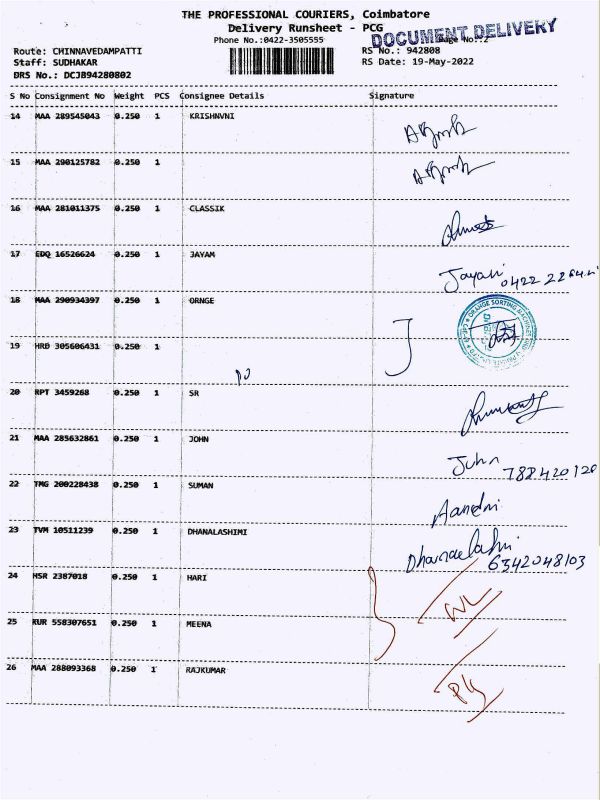 THE PROFESSIONAL COURIERS, Coimbatore
Delivery Runsheet - PCG
DOCUMENT DELIVERY
Phone No.:0422-3505555 Page No.:2
Route: CHINNAVEDAMPATTI RS No.: 942808
Staff: SUDHAKAR RS Date: 19-May-2022
DRS No.: DCJB94280802
S No Consignment No Weight PCS Consignee Details Signature
14 MAA 289545043 0.250 1 KRISHNVNI
15 MAA 290125782 0.250 1
16 MAA 281011375 0.250 1 CLASSIK
17 EDQ 16526624 0.250 1 JAYAM
Jayam 0422 2264
18 MAA 290934397 0.250 1 ORNGE
ORANGE SORTING MACHINES
19 HRD 305606431 0.250 1
20 RPT 3459268 0.250 1 SR
21 MAA 285632861 0.250 1 JOHN
John 788420120
22 TMG 200228438 0.250 1 SUMAN
23 TVM 10511239 0.250 1 DHANALASHIMI
6342048103
24 HSR 2387018 0.250 1 HARI
25 KUR 558307651 0.250 1 MEENA
26 MAA 288093368 0.250 1 RAJKUMAR